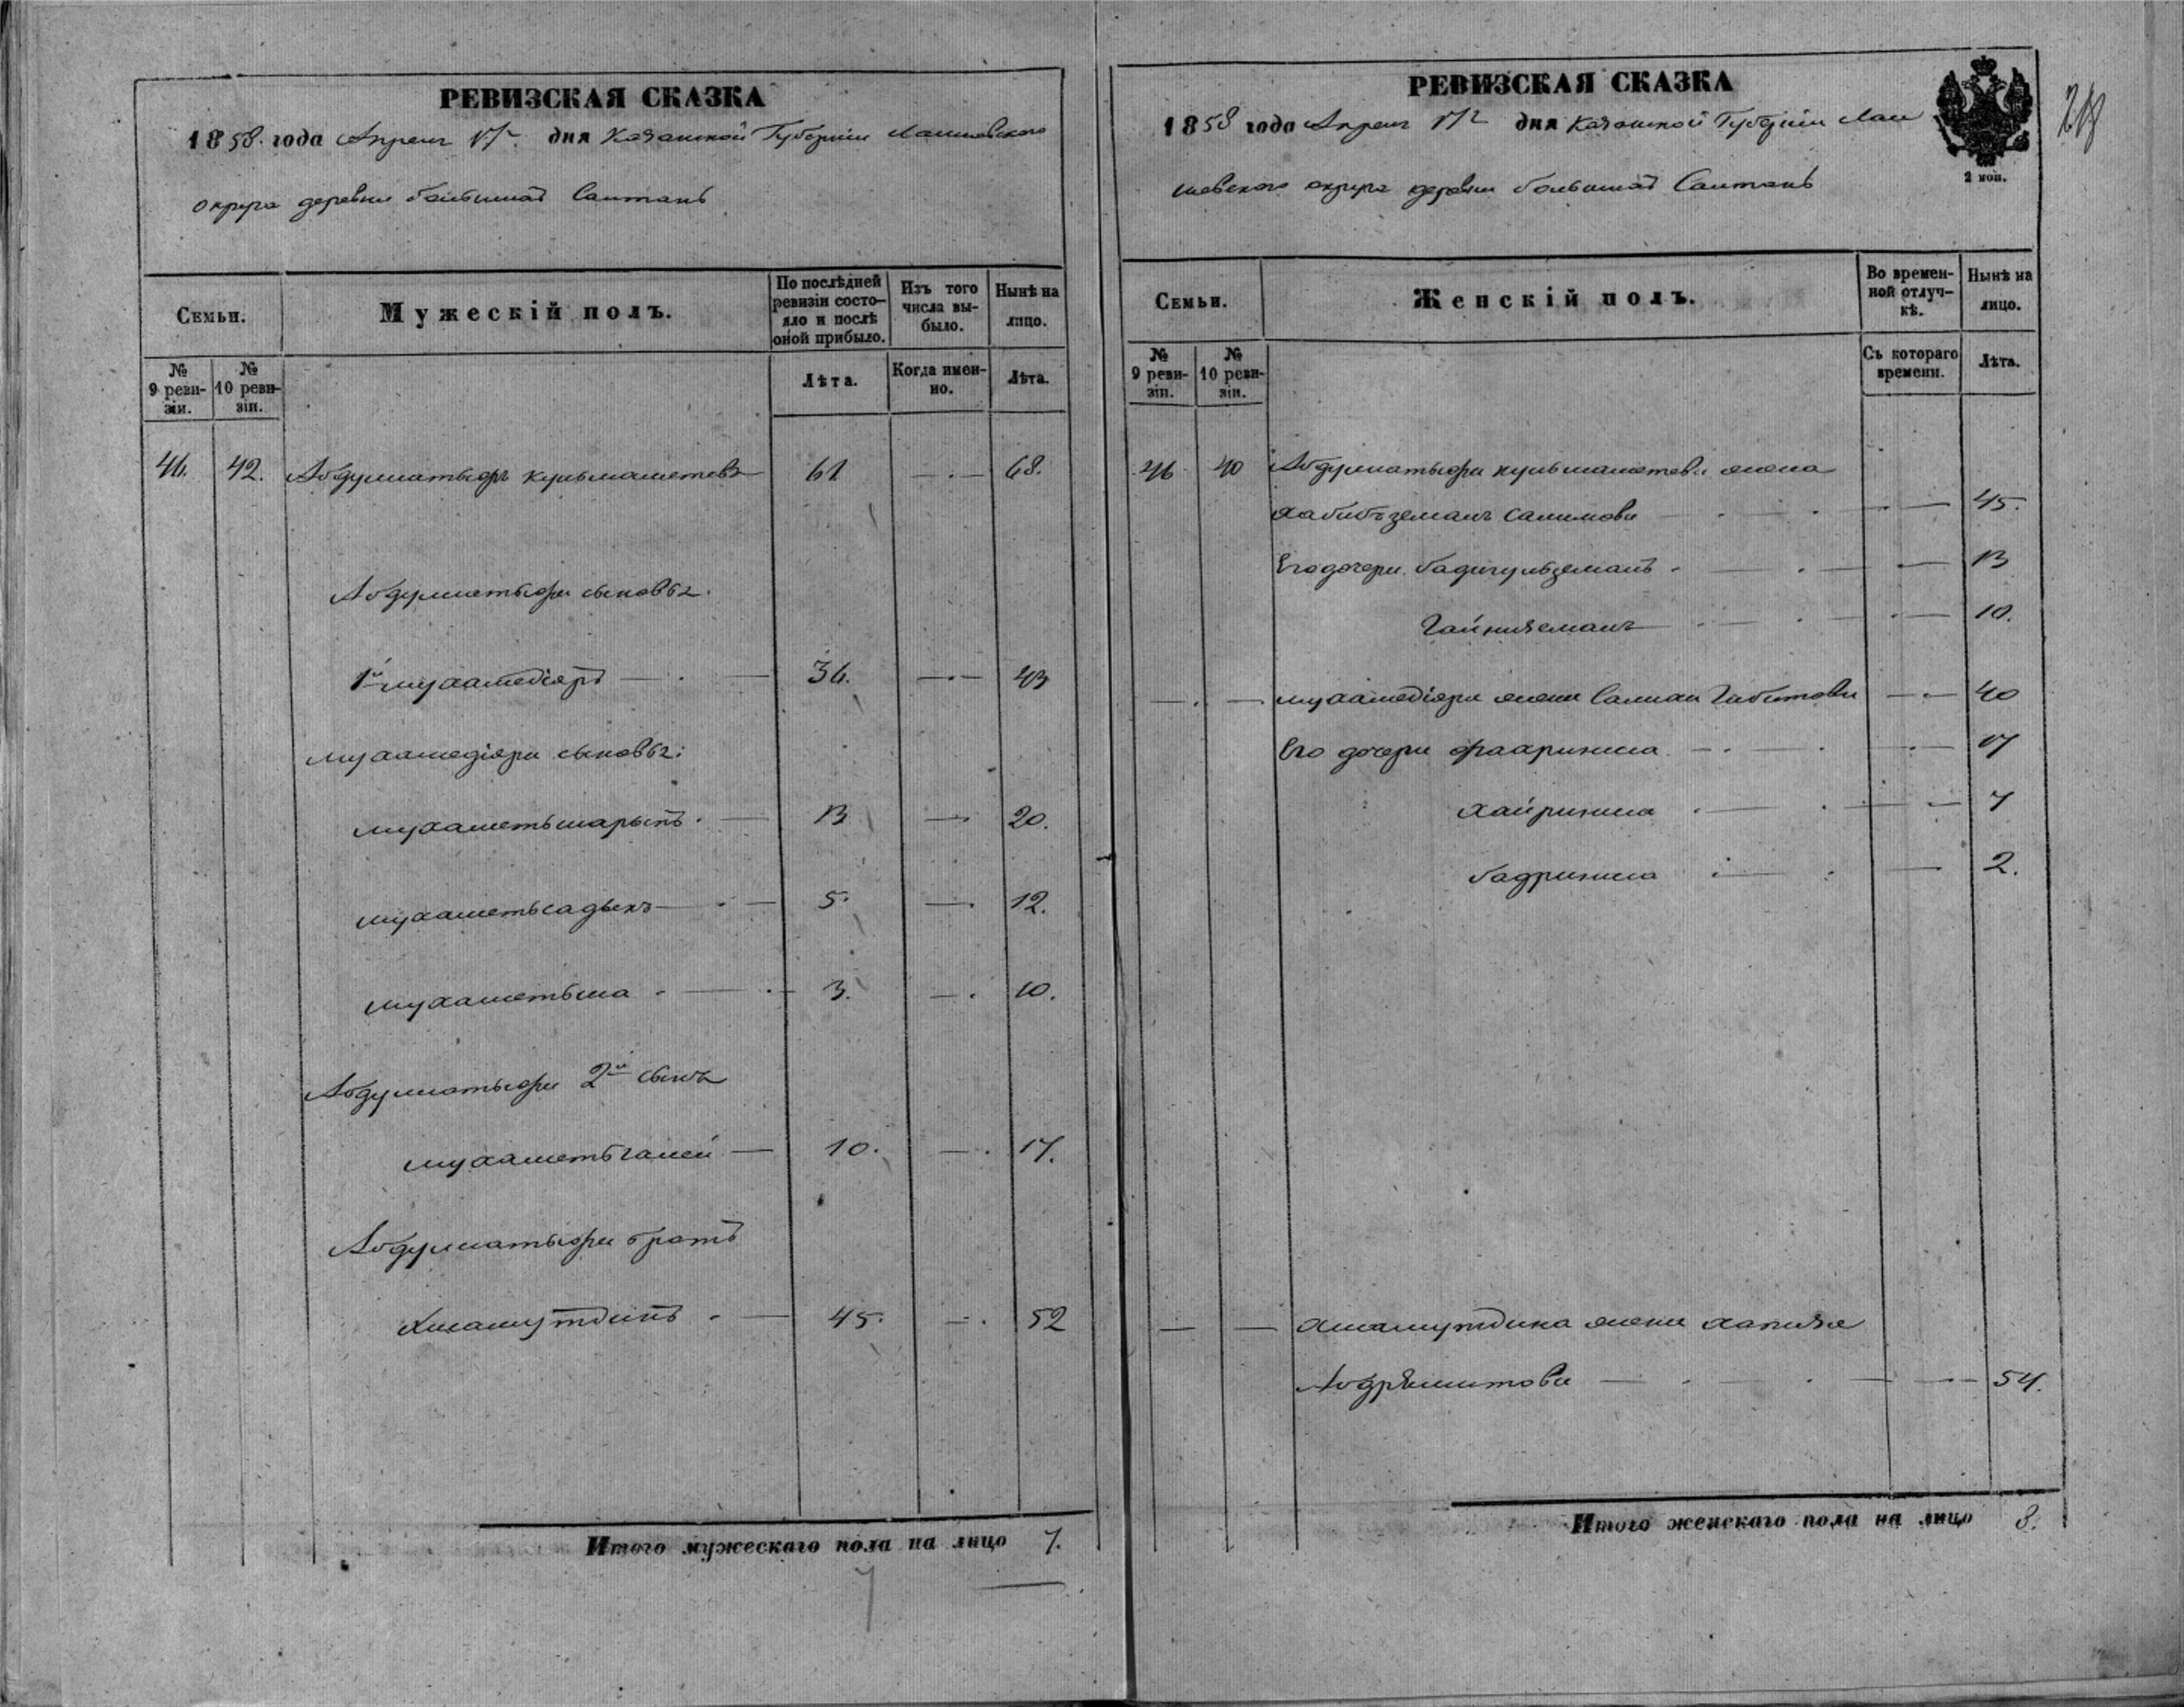 РЕВИЗСКАЯ СКАЗКА
1858. года Апреля 17. дня Казанской Губернiи Лаишевского
округа деревни большай Салтанъ
Семьи.
Мужескiй полъ.
По послѣдней ревизiи состояло и послѣ оной прибыло.
Изъ того числа выбыло.
Нынѣ на лицо.
№ 9 ревизiи.
№ 10 ревизiи.
Лѣта.
Когда именно.
Лѣта.
46. 42. Абдулматыфъ кульмаметевъ 61 — 68.
Абдулматыфа сыновья.
1й мухамедiяръ — 36. — 43
мухамедiяра сыновья:
мухаметьшарыпъ. — 13 — 20.
мухаметьсадыкъ — 5. — 12.
мухаметьша — 3. — 10.
Абдулматыфа 2й сынъ
мухаметьгалей — 10. — 17.
Абдулматыфа братъ
Хисамутдинъ — 45. — 52
Итого мужескаго пола на лицо 7.
7
РЕВИЗСКАЯ СКАЗКА
1858 года Апреля 17 дня Казанской Губернiи Лаи
шевского округа деревни большай Салтанъ
2 коп.
Семьи.
Женскiй полъ.
Во временной отлучкѣ.
Нынѣ на лицо.
№ 9 ревизiи.
№ 10 ревизiи.
Съ котораго времени.
Лѣта.
46 40 Абдулматыфа кульмаметева жена
хабибъземалъ салимова — 45.
Его дочери бадигульземалъ — 13
Гайниземалъ — 10.
— — мухамедiяра жена Салиха Габитова — 40
Его дочери фахриниса — 17
хайриниса — 7
бадриниса — 2.
— — хисамутдина жена хапиза
Абдряшитова — 54.
Итого женскаго пола на лицо 8.